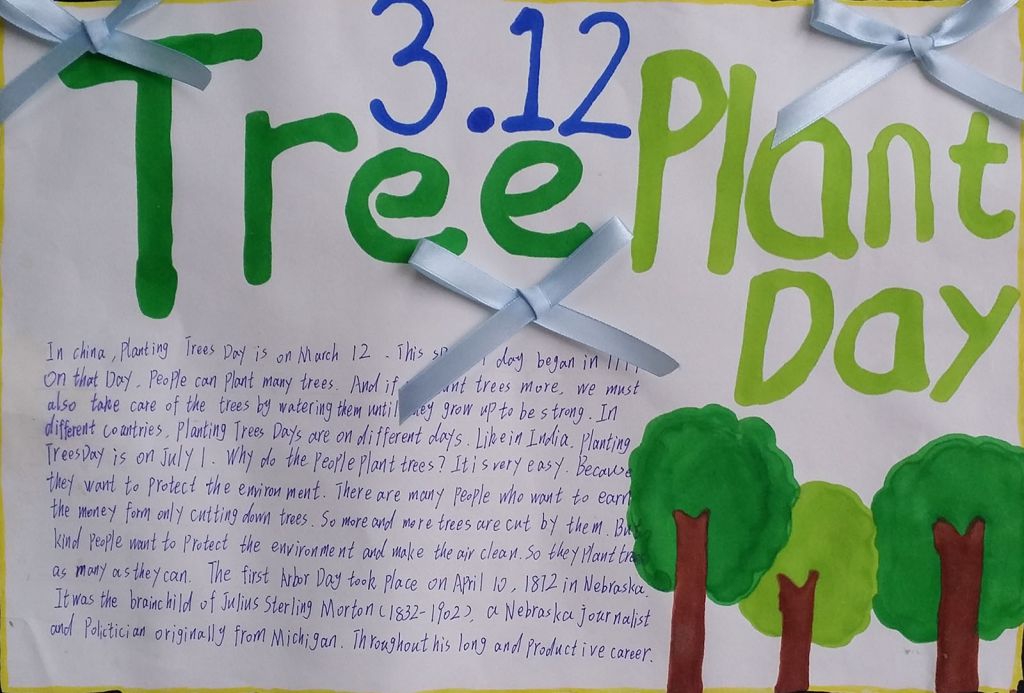 3.12
Tree Plant
Day
In china, Planting Trees Day is on March 12. This day began in
On that Day, People can Plant many trees. And if trees more, we must
also take care of the trees by watering them until they grow up to be strong. In
different countries, Planting Trees Days are on different days. Like in India, Planting
Trees Day is on July 1. Why do the People Plant trees? It is very easy. Because
they want to Protect the environment. There are many People who want to earn
the money form only cutting down trees. So more and more trees are cut by them. But
kind People want to Protect the environment and make the air clean. So they Plant trees
as many as they can. The first Arbor Day took Place on April 10, 1872 in Nebraska.
It was the brainchild of Julius Sterling Morton (1832-1902), a Nebraska journalist
and Polictician originally from Michigan. Throughout his long and productive career.